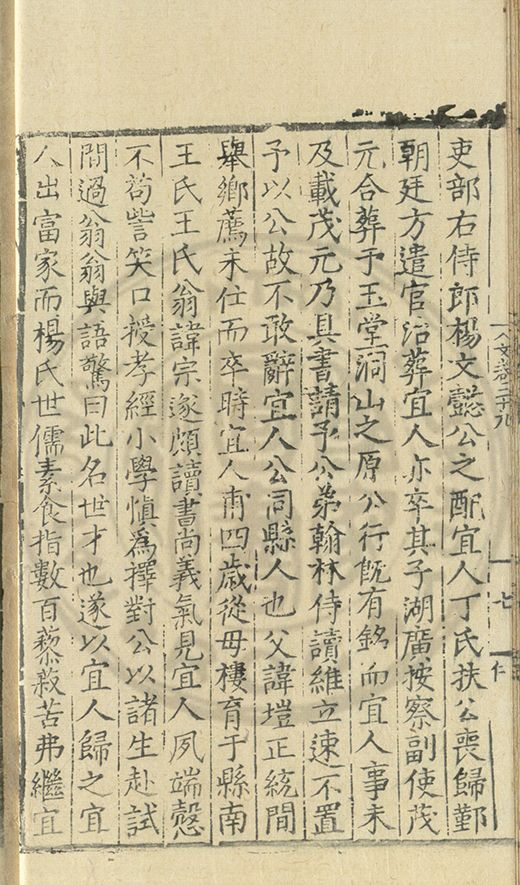 吏部右侍郎楊文懿公之配宜人丁氏扶公喪歸鄞
朝廷方遣官治葬宜人亦卒其子湖廣按察副使茂
元合葬于玉堂洞山之原公行旣有銘而宜人事未
及載茂元乃具書請予公弟翰林侍讀維立速不置
予以公故不敢辭宜人公同縣人也父諱塏正統間
舉鄉薦未仕而卒時宜人甫四歲從母樓育于縣南
王氏王氏翁諱宗遂頗讀書尚義氣見宜人夙端慤
不苟訾笑口授孝經小學愼爲擇對公以諸生赴試
問過翁翁與語驚曰此名世才也遂以宜人歸之宜
人出富家而楊氏世儒素食指數百藜菽苦弗繼宜
七
仁